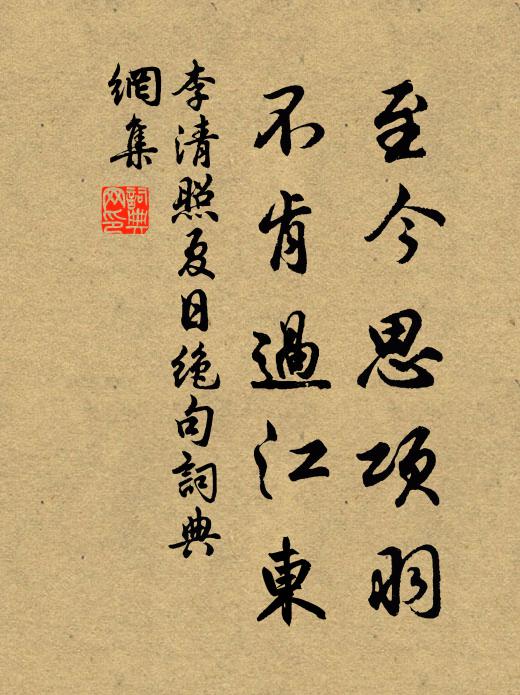 至今思项羽
不肯過江東
李清照夏日绝句詞典
網集
詞典
网印